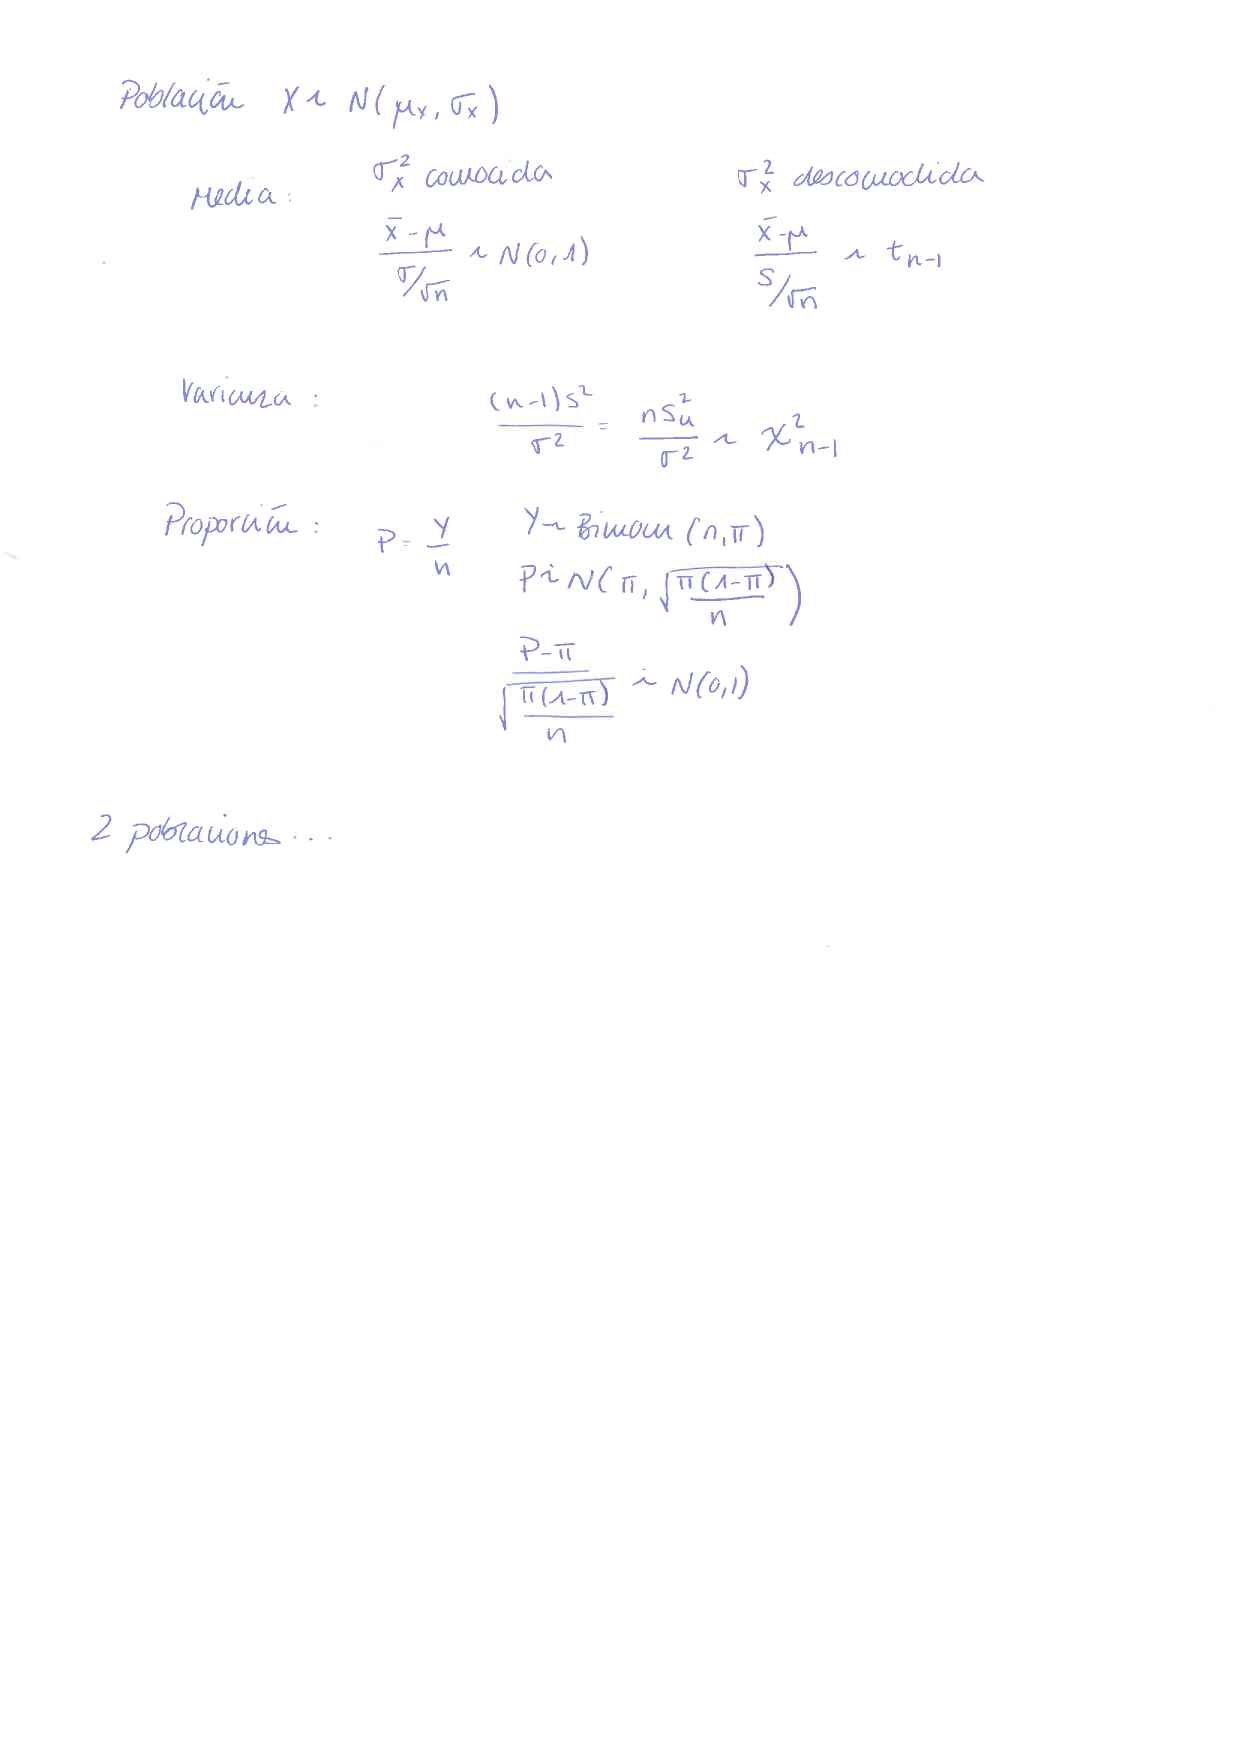 Población X ~ N(μx, σx)
Media: σ²x conocida σ²x desconocida
(x̄ - μ)/(σ/√n) ~ N(0,1) (x̄ - μ)/(s/√n) ~ t n-1
Varianza: (n-1)s²/σ² = nS²n/σ² ~ χ² n-1
Proporción: P = Y/n Y ~ Binom (n,π)
P ~ N(π, √(π(1-π)/n))
(P-π)/√(π(1-π)/n) ~ N(0,1)
2 poblaciones ...